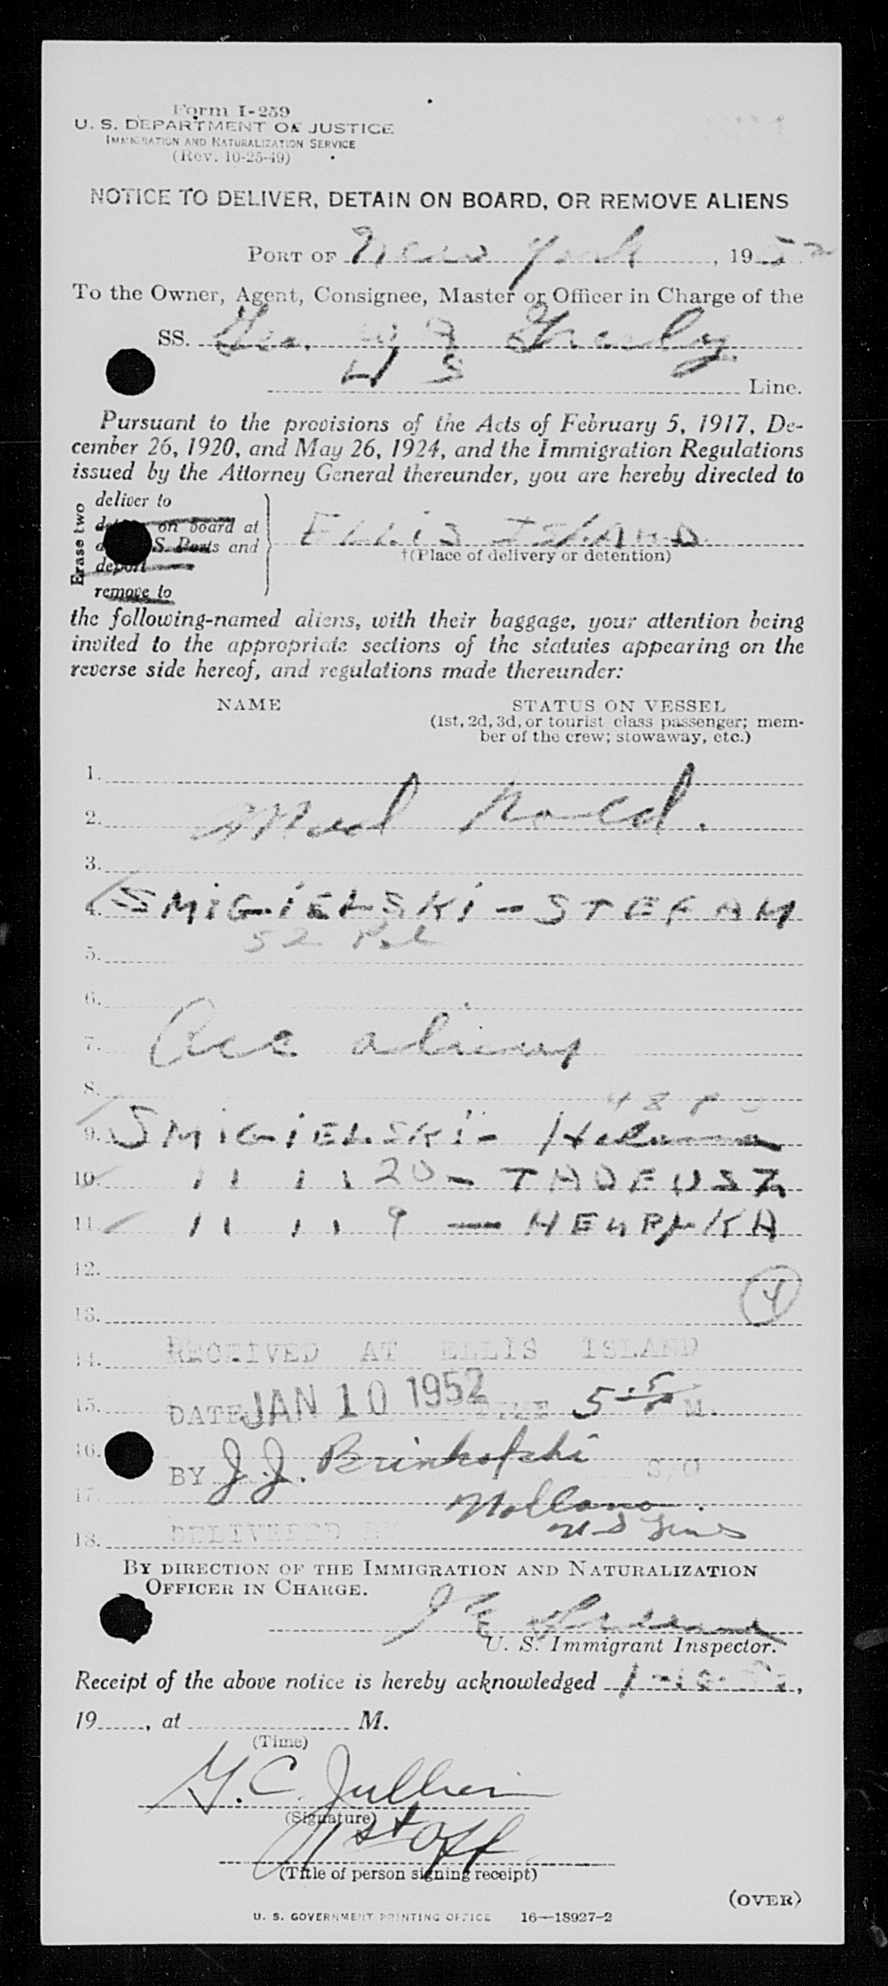 Form I-259
U. S. DEPARTMENT OF JUSTICE
IMMIGRATION AND NATURALIZATION SERVICE
(Rev. 10-25-49)
NOTICE TO DELIVER, DETAIN ON BOARD, OR REMOVE ALIENS
PORT OF New York, 1952
To the Owner, Agent, Consignee, Master or Officer in Charge of the
SS. Gen. Greely
U S Line.
Pursuant to the provisions of the Acts of February 5, 1917, De-
cember 26, 1920, and May 26, 1924, and the Immigration Regulations
issued by the Attorney General thereunder, you are hereby directed to
Erase two
deliver to
on board at
S. Ports and
deport
remove to
ELLIS ISLAND
†(Place of delivery or detention)
the following-named aliens, with their baggage, your attention being
invited to the appropriate sections of the statutes appearing on the
reverse side hereof, and regulations made thereunder:
NAME STATUS ON VESSEL
(1st, 2d, 3d, or tourist class passenger; mem-
ber of the crew; stowaway, etc.)
1.
2. Med
3.
4. SMIGIELSKI - STEFAN
52 Pol
5.
6.
7. Acc aliens
8. 48
9. SMIGIELSKI - Helena
10. 11 11 20 - TADEUSZ
11. 11 11 9 - HENRYKA
12.
4
13.
14. RECEIVED AT ELLIS ISLAND
15. DATE JAN 10 1952 TIME 5 M.
16.
BY J. J.
17.
U S Lines
18. DELIVERED
BY DIRECTION OF THE IMMIGRATION AND NATURALIZATION
OFFICER IN CHARGE.
U. S. Immigrant Inspector.
Receipt of the above notice is hereby acknowledged 1-10-52,
19, at M.
(Time)
G. C. Jullien
(Signature)
1st Off
(Title of person signing receipt)
(OVER)
U. S. GOVERNMENT PRINTING OFFICE 16—18927-2